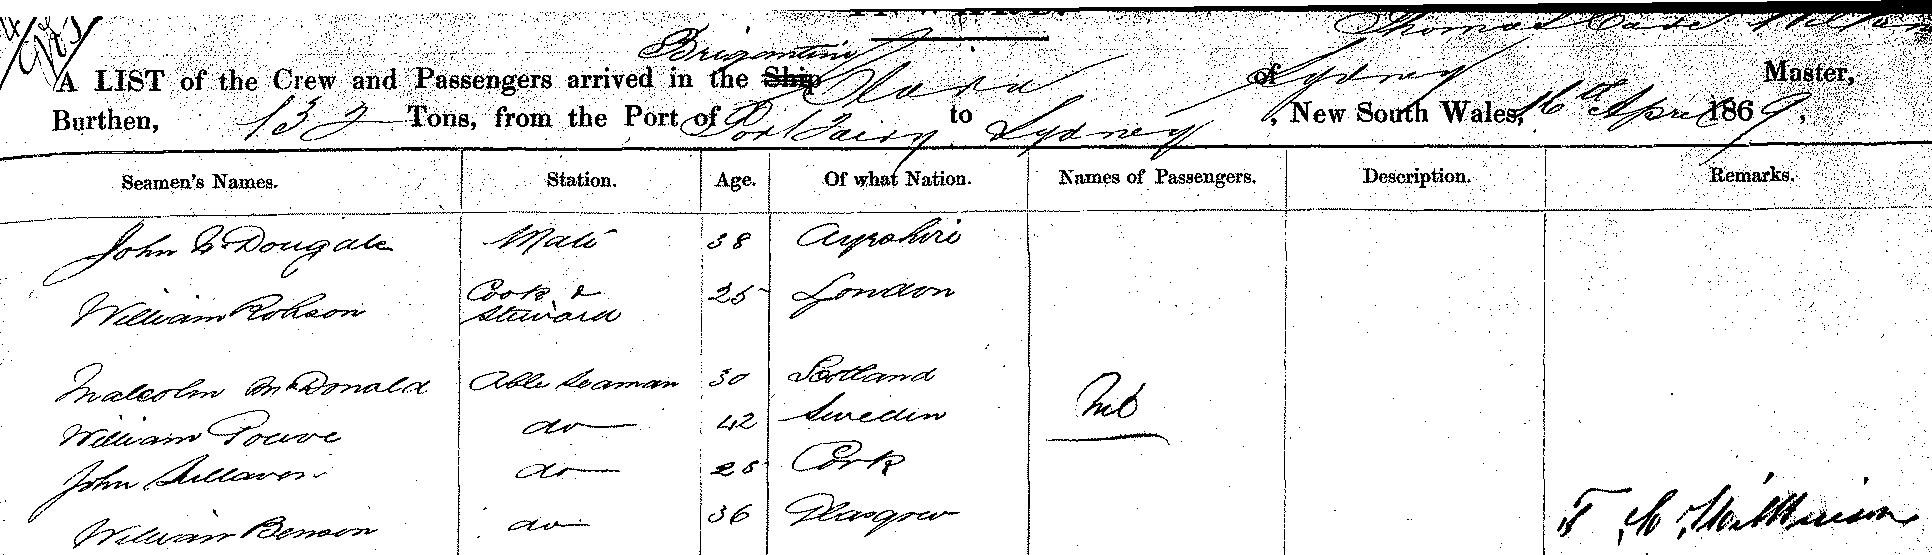 Thomas
Brigantine
A LIST of the Crew and Passengers arrived in the Ship Clara of Sydney Master,
Burthen, 132 Tons, from the Port of Port Fairy to Sydney, New South Wales, 16th April 1869.
Seamen's Names. Station. Age. Of what Nation. Names of Passengers. Description. Remarks.
John McDougale Mate 38 Ayrshire
William Robson Cook & Steward 25 London
Malcolm McDonald Able Seaman 30 Scotland
William do 42 Sweden
Nil
John do Cork
William Benson do 36 Glasgow